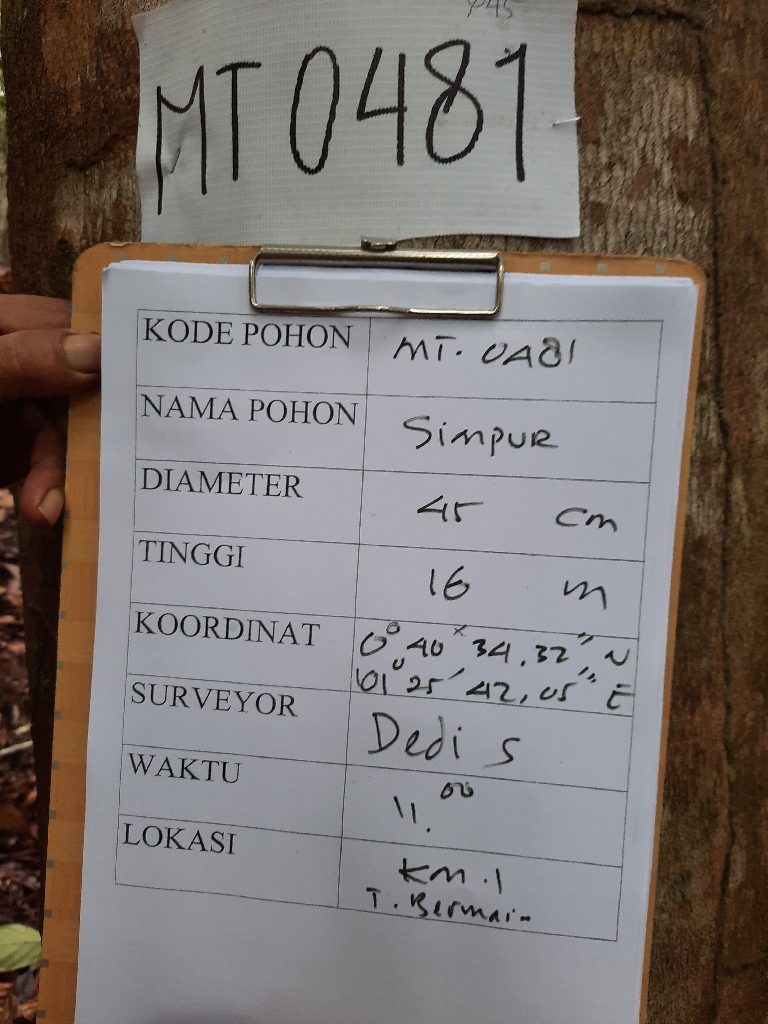 φ45
MT 0481
KODE POHON MT. 0481
NAMA POHON SimpuR
DIAMETER 45 cm
TINGGI 16 m
KOORDINAT 0° 40' 34,32" N
101° 25' 42,05" E
SURVEYOR Dedi S
WAKTU 11.00
LOKASI Km.1
T. Bermain